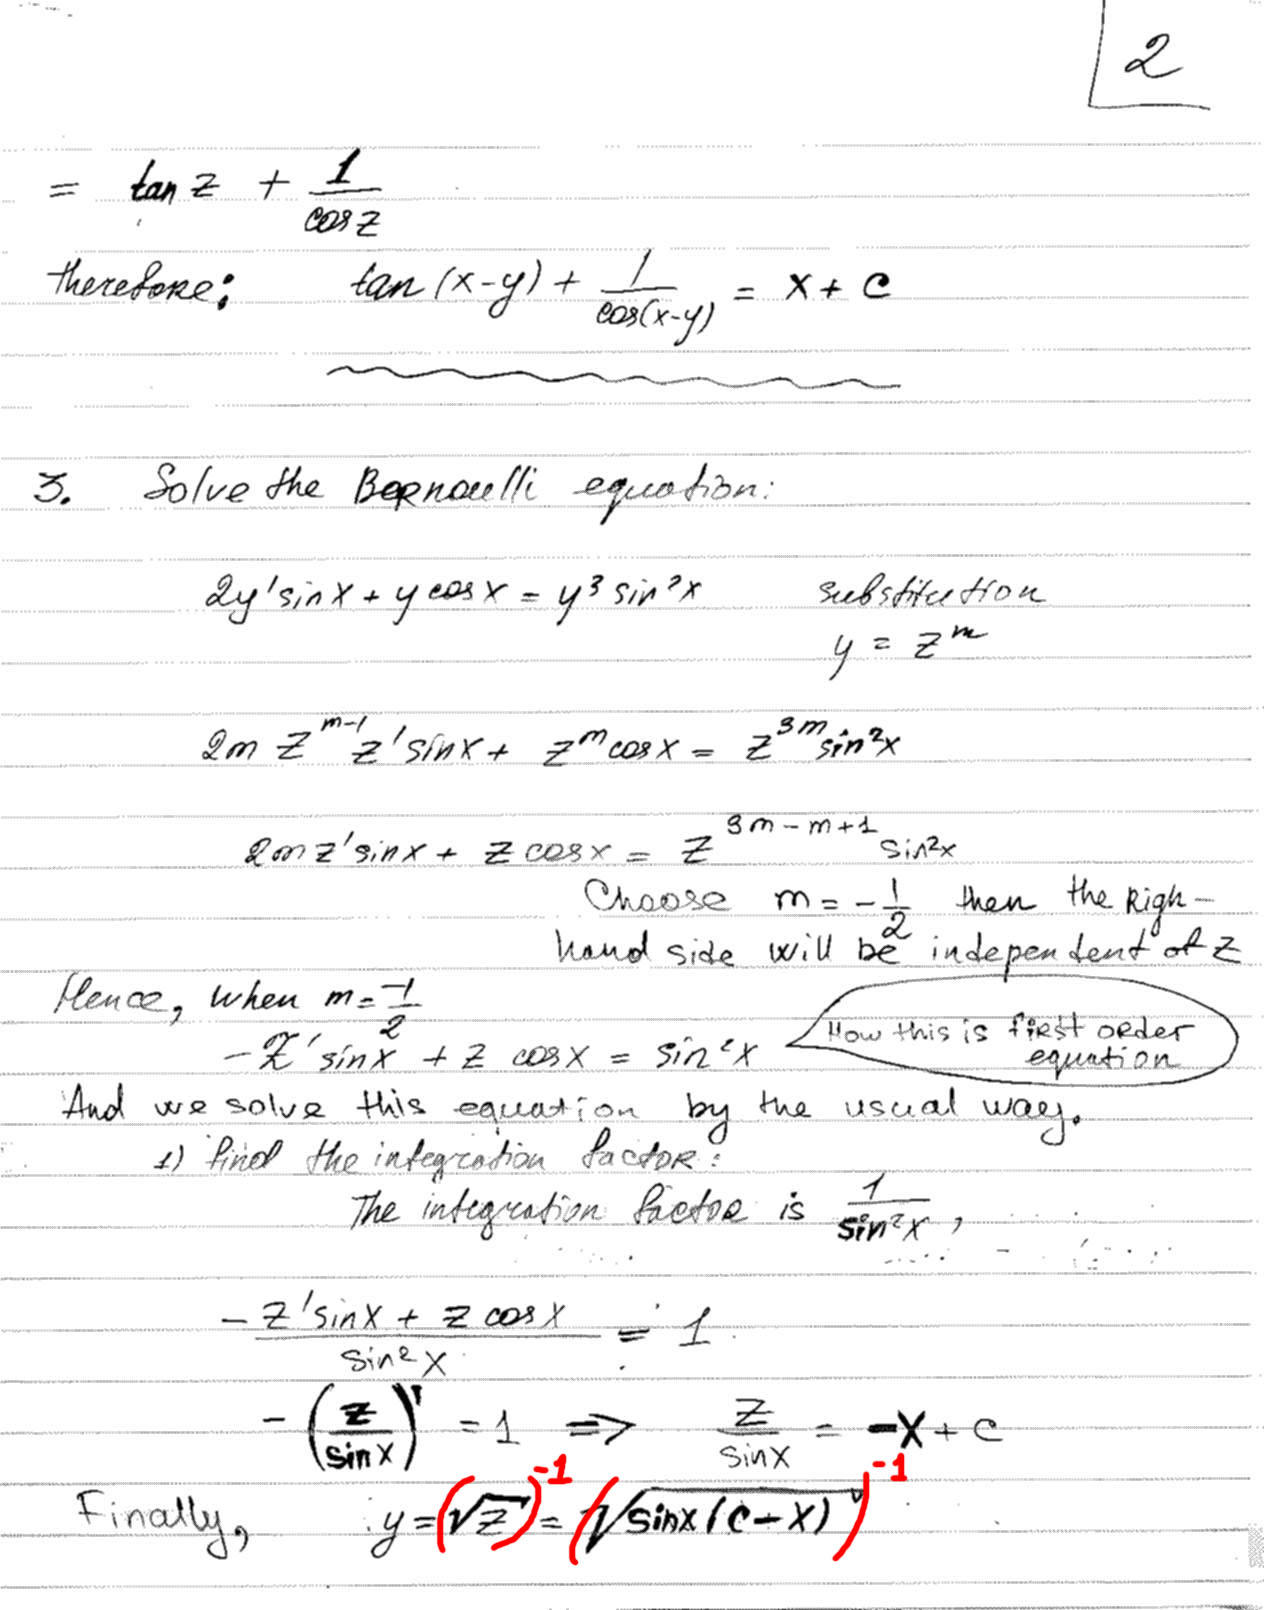 2
= tan z + 1/cos z
therefore: tan (x-y) + 1/cos(x-y) = x + c
3. Solve the Bernoulli equation:
2y' sin x + y cos x = y³ sin²x substitution
y = z^m
2m z^(m-1) z' sin x + z^m cos x = z^(3m) sin²x
2m z' sin x + z cos x = z^(3m-m+1) sin²x
Choose m = -1/2 then the Righ-
hand side will be independent of z
Hence, when m = -1/2
-z' sin x + z cos x = sin²x Now this is first order
equation
And we solve this equation by the usual way.
1) find the integration factor:
The integration factor is 1/sin²x,
(-z' sin x + z cos x)/sin²x = 1
-(z/sin x)' = 1 => z/sin x = -x + c
Finally, y = (√z)^-1 = (√sin x (c-x))^-1